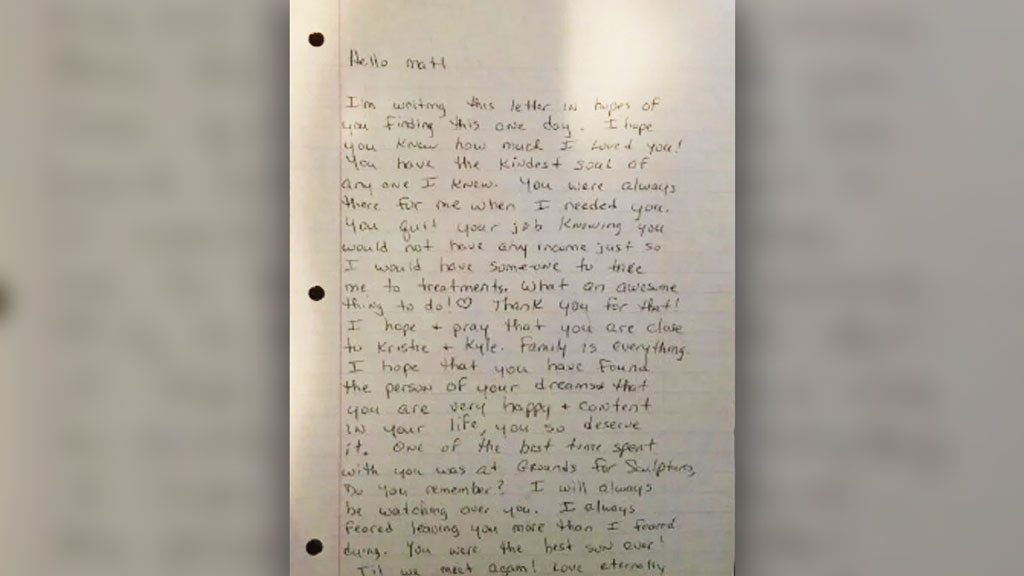 Hello Matt
I'm writing this letter in hopes of
you finding this one day. I hope
you knew how much I loved you!
You have the kindest soul of
anyone I knew. You were always
there for me when I needed you.
You quit your job knowing you
would not have any income just so
I would have someone to take
me to treatments. What an awesome
thing to do!♡ Thank you for that!
I hope + pray that you are close
to Kristie + Kyle. Family is everything.
I hope that you have found
the person of your dreams that
you are very happy + content
in your life, you so deserve
it. One of the best time spent
with you was at Grounds for Sculpture,
Do you remember? I will always
be watching over you. I always
feared leaving you more than I feared
dying. You were the best son ever!
Til we meet again! Love eternally